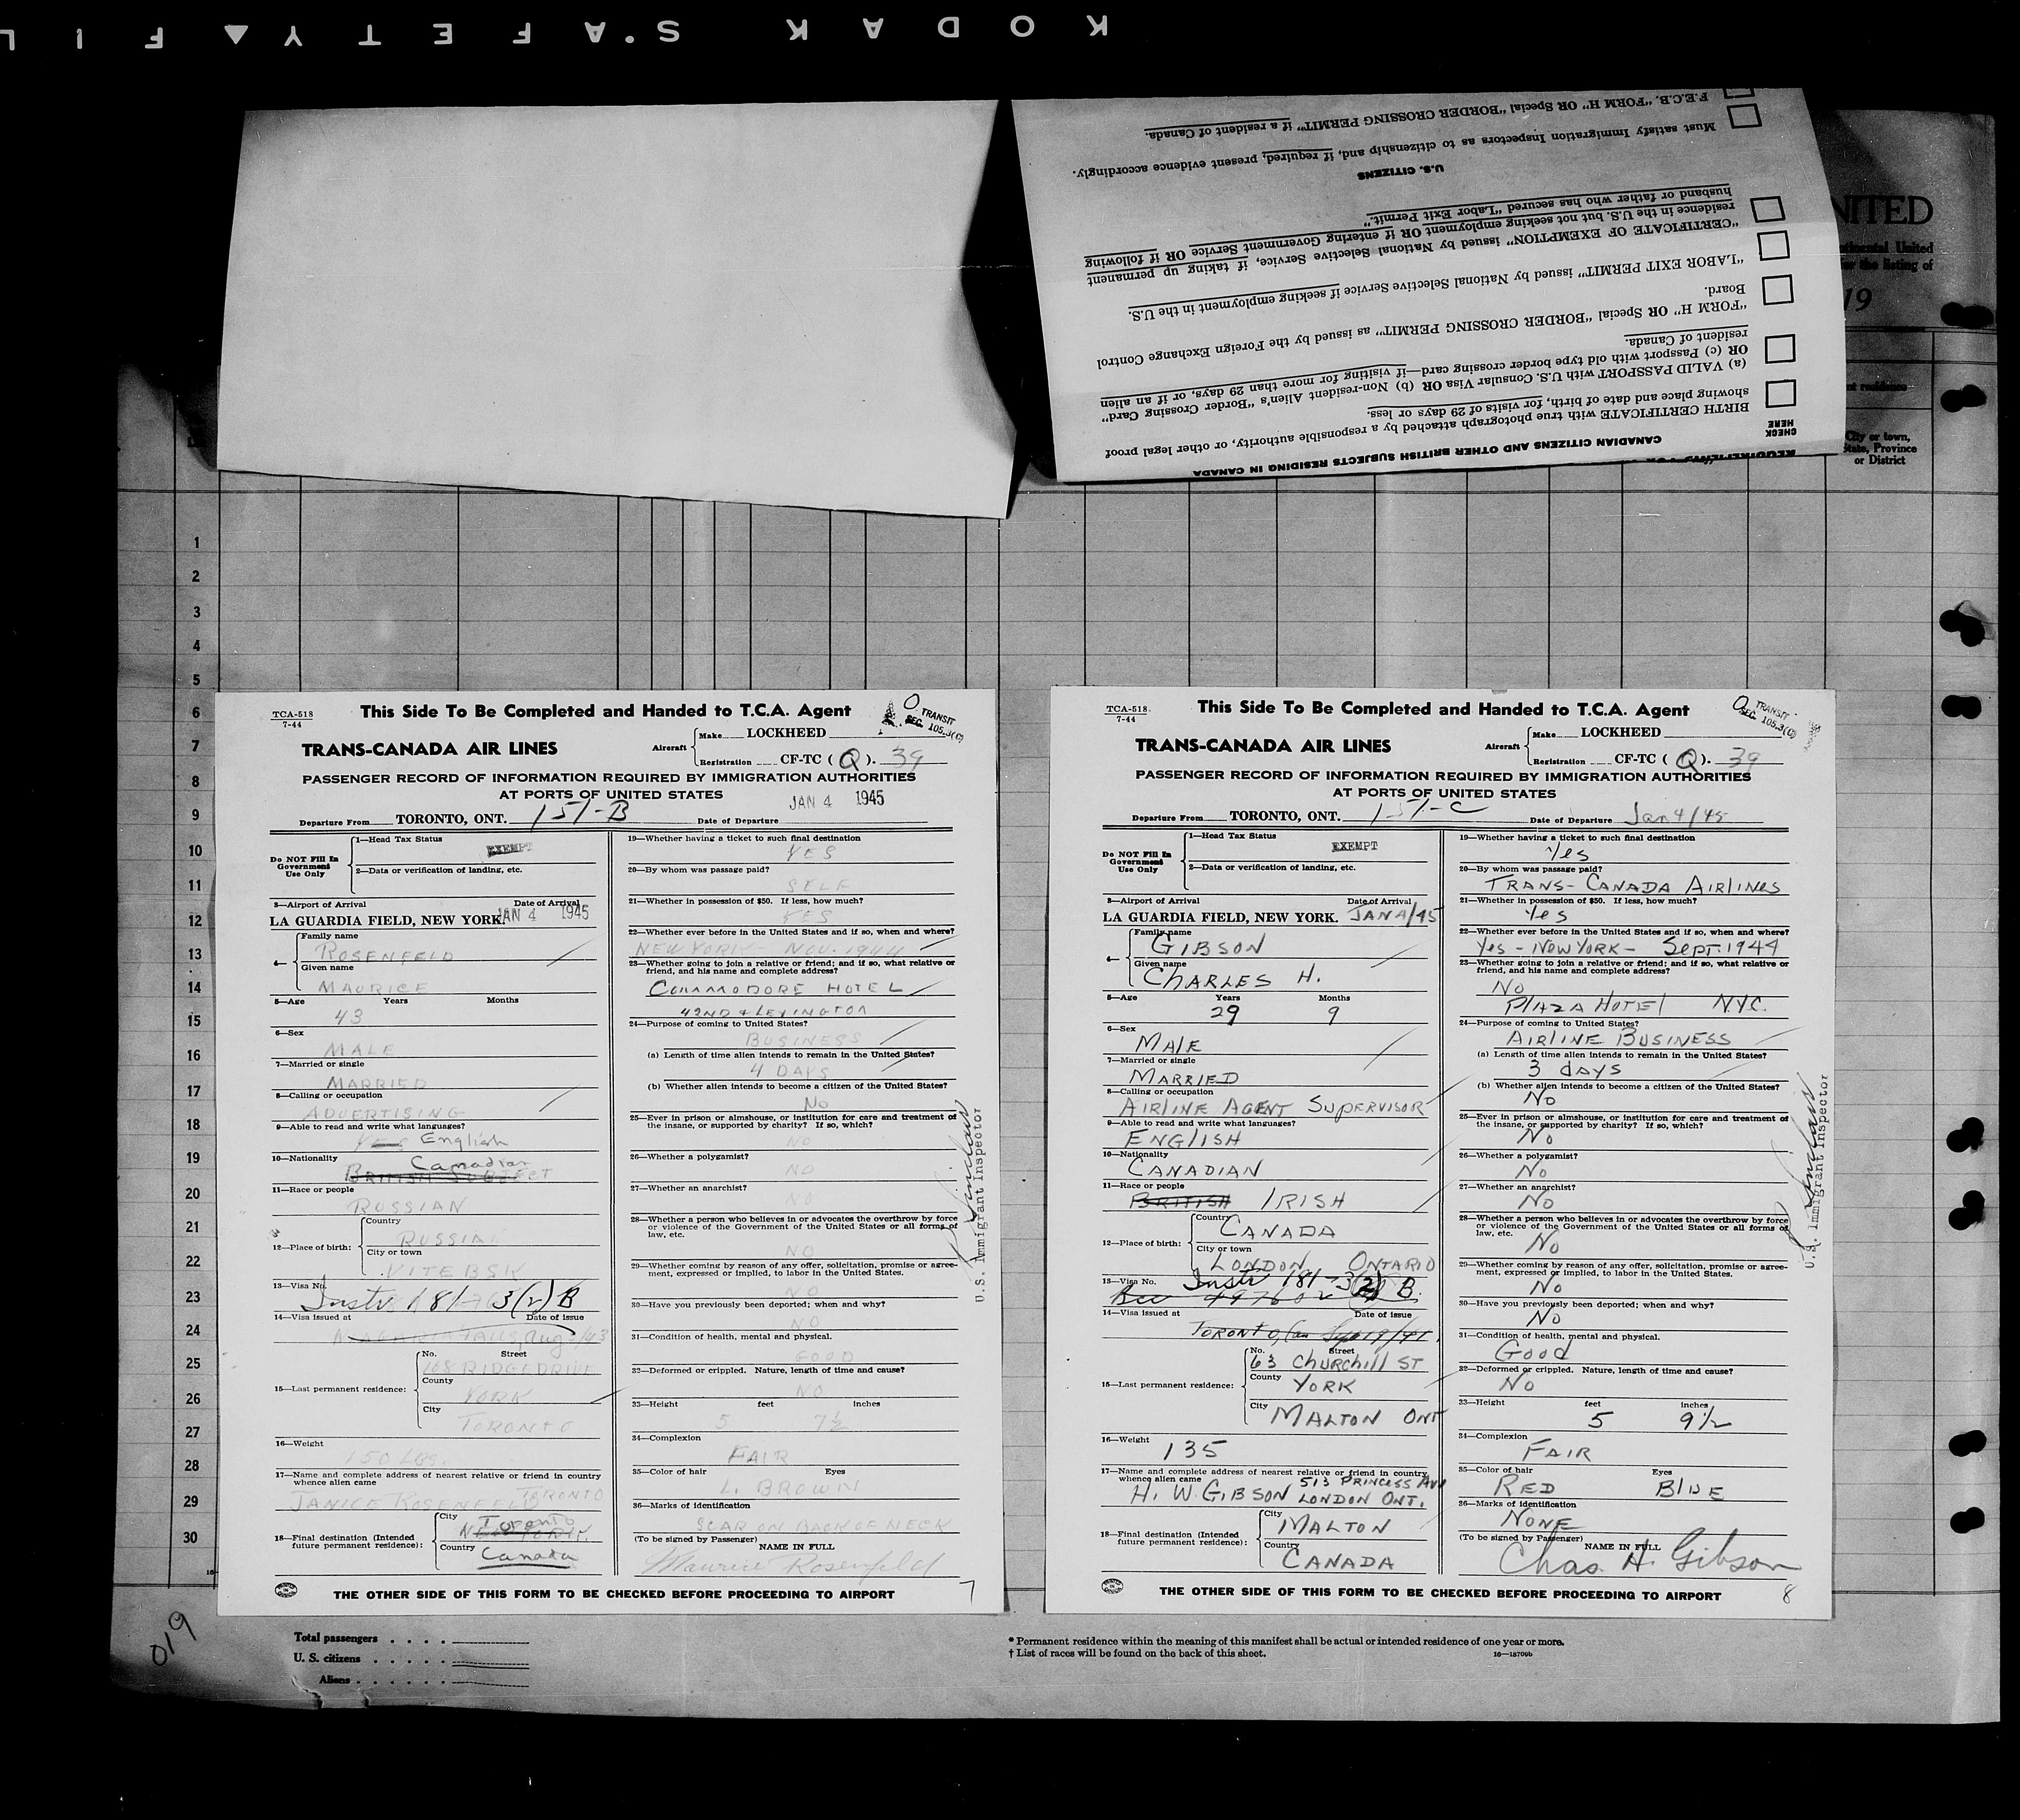 KODAK S.AFETY▲FIL
REQUIREMENTS FOR
CANADIAN CITIZENS AND OTHER BRITISH SUBJECTS RESIDING IN CANADA
CHECK
HERE
BIRTH CERTIFICATE with true photograph attached by a responsible authority, or other legal proof
showing place and date of birth, for visits of 29 days or less.
(a) VALID PASSPORT with U.S. Consular Visa OR (b) Non-resident Alien's "Border Crossing Card"
OR (c) Passport with old type border crossing card—if visiting for more than 29 days, or if an alien
resident of Canada.
"FORM H" OR Special "BORDER CROSSING PERMIT" as issued by the Foreign Exchange Control
Board.
"LABOR EXIT PERMIT" issued by National Selective Service if seeking employment in the U.S.
"CERTIFICATE OF EXEMPTION" issued by National Selective Service, if taking up permanent
residence in the U.S. but not seeking employment OR if entering Government Service OR if following
husband or father who has secured "Labor Exit Permit."
U.S. CITIZENS
Must satisfy Immigration Inspectors as to citizenship and, if required, present evidence accordingly.
F.E.C.B. "FORM H" OR Special "BORDER CROSSING PERMIT" if a resident of Canada.
NITED
ntinental United
or the listing of
19
nt residence
City or town,
State, Province
or District
1
2
3
4
5
6
7
8
9
10
11
12
13
14
15
16
17
18
19
20
21
22
23
24
25
26
27
28
29
30
TCA-518
7-44
This Side To Be Completed and Handed to T.C.A. Agent
O TRANSIT
SEC. 105.3(C)
TRANS-CANADA AIR LINES
Aircraft
Make LOCKHEED
Registration CF-TC (Q). 39
PASSENGER RECORD OF INFORMATION REQUIRED BY IMMIGRATION AUTHORITIES
AT PORTS OF UNITED STATES
JAN 4 1945
Departure From TORONTO, ONT. 151-B Date of Departure
Do NOT Fill In
Government
Use Only
1—Head Tax Status
EXEMPT
2—Data or verification of landing, etc.
3—Airport of Arrival Date of Arrival
LA GUARDIA FIELD, NEW YORK. JAN 4 1945
4—
Family name
ROSENFELD
Given name
MAURICE
5—Age Years Months
43
6—Sex
MALE
7—Married or single
MARRIED
8—Calling or occupation
ADVERTISING
9—Able to read and write what languages?
YES English
10—Nationality
Canadian
BRITISH SUBJECT
11—Race or people
RUSSIAN
12—Place of birth:
Country
RUSSIA
City or town
VITEBSK
13—Visa No.
Instr 181-3(2) B
14—Visa issued at Date of issue
NIAGARA FALLS, Aug /43
15—Last permanent residence:
No. Street
168 RIDGE DRIVE
County
YORK
City
TORONTO
16—Weight
150 LBS.
17—Name and complete address of nearest relative or friend in country
whence alien came
JANICE ROSENFELD TORONTO
18—Final destination (Intended
future permanent residence):
City
Toronto
NEW YORK
Country
Canada
19—Whether having a ticket to such final destination
YES
20—By whom was passage paid?
SELF
21—Whether in possession of $50. If less, how much?
YES
22—Whether ever before in the United States and if so, when and where?
NEW YORK - NOV. 1944
23—Whether going to join a relative or friend; and if so, what relative or
friend, and his name and complete address?
COMMODORE HOTEL
42ND & LEXINGTON
24—Purpose of coming to United States?
BUSINESS
(a) Length of time alien intends to remain in the United States?
4 DAYS
(b) Whether alien intends to become a citizen of the United States?
NO
25—Ever in prison or almshouse, or institution for care and treatment of
the insane, or supported by charity? If so, which?
NO
26—Whether a polygamist?
NO
27—Whether an anarchist?
NO
28—Whether a person who believes in or advocates the overthrow by force
or violence of the Government of the United States or all forms of
law, etc.
NO
29—Whether coming by reason of any offer, solicitation, promise or agree-
ment, expressed or implied, to labor in the United States.
NO
30—Have you previously been deported; when and why?
NO
31—Condition of health, mental and physical.
GOOD
32—Deformed or crippled. Nature, length of time and cause?
NO
33—Height feet inches
5 7½
34—Complexion
FAIR
35—Color of hair Eyes
L. BROWN
36—Marks of identification
SCAR ON BACK OF NECK
(To be signed by Passenger) NAME IN FULL
Maurice Rosenfeld
U.S. Immigrant Inspector
THE OTHER SIDE OF THIS FORM TO BE CHECKED BEFORE PROCEEDING TO AIRPORT
7
TCA-518.
7-44
This Side To Be Completed and Handed to T.C.A. Agent
O TRANSIT
SEC. 105.3(C)
TRANS-CANADA AIR LINES
Aircraft
Make LOCKHEED
Registration CF-TC (Q). 39
PASSENGER RECORD OF INFORMATION REQUIRED BY IMMIGRATION AUTHORITIES
AT PORTS OF UNITED STATES
Departure From TORONTO, ONT. 151-C Date of Departure Jan 4/45
Do NOT Fill In
Government
Use Only
1—Head Tax Status
EXEMPT
2—Data or verification of landing, etc.
3—Airport of Arrival Date of Arrival
LA GUARDIA FIELD, NEW YORK. JAN 4/45
4—
Family name
GIBSON
Given name
CHARLES H.
5—Age Years Months
29 9
6—Sex
MALE
7—Married or single
MARRIED
8—Calling or occupation
AIRLINE AGENT SUPERVISOR
9—Able to read and write what languages?
ENGLISH
10—Nationality
CANADIAN
11—Race or people
BRITISH IRISH
12—Place of birth:
Country
CANADA
City or town
LONDON ONTARIO
13—Visa No.
Instr 181-3(2) B.
14—Visa issued at Date of issue
TORONTO, Can Sep 19/41.
15—Last permanent residence:
No. Street
63 CHURCHILL ST
County
YORK
City
MALTON ONT
16—Weight
135
17—Name and complete address of nearest relative or friend in country
whence alien came 513 PRINCESS AVE
H. W. GIBSON LONDON ONT.
18—Final destination (Intended
future permanent residence):
City
MALTON
Country
CANADA
19—Whether having a ticket to such final destination
Yes
20—By whom was passage paid?
TRANS-CANADA AIRLINES
21—Whether in possession of $50. If less, how much?
Yes
22—Whether ever before in the United States and if so, when and where?
Yes - NEW YORK - SEPT. 1944
23—Whether going to join a relative or friend; and if so, what relative or
friend, and his name and complete address?
NO
PLAZA HOTEL N.Y.C.
24—Purpose of coming to United States?
AIRLINE BUSINESS
(a) Length of time alien intends to remain in the United States?
3 days
(b) Whether alien intends to become a citizen of the United States?
No
25—Ever in prison or almshouse, or institution for care and treatment of
the insane, or supported by charity? If so, which?
No
26—Whether a polygamist?
No
27—Whether an anarchist?
No
28—Whether a person who believes in or advocates the overthrow by force
or violence of the Government of the United States or all forms of
law, etc.
No
29—Whether coming by reason of any offer, solicitation, promise or agree-
ment, expressed or implied, to labor in the United States.
No
30—Have you previously been deported; when and why?
No
31—Condition of health, mental and physical.
Good
32—Deformed or crippled. Nature, length of time and cause?
No
33—Height feet inches
5 9½
34—Complexion
FAIR
35—Color of hair Eyes
RED BLUE
36—Marks of identification
NONE
(To be signed by Passenger) NAME IN FULL
Chas. H. Gibson
U.S. Immigrant Inspector
THE OTHER SIDE OF THIS FORM TO BE CHECKED BEFORE PROCEEDING TO AIRPORT
8
019
Total passengers
U. S. citizens
Aliens
* Permanent residence within the meaning of this manifest shall be actual or intended residence of one year or more.
† List of races will be found on the back of this sheet.
16—18709b